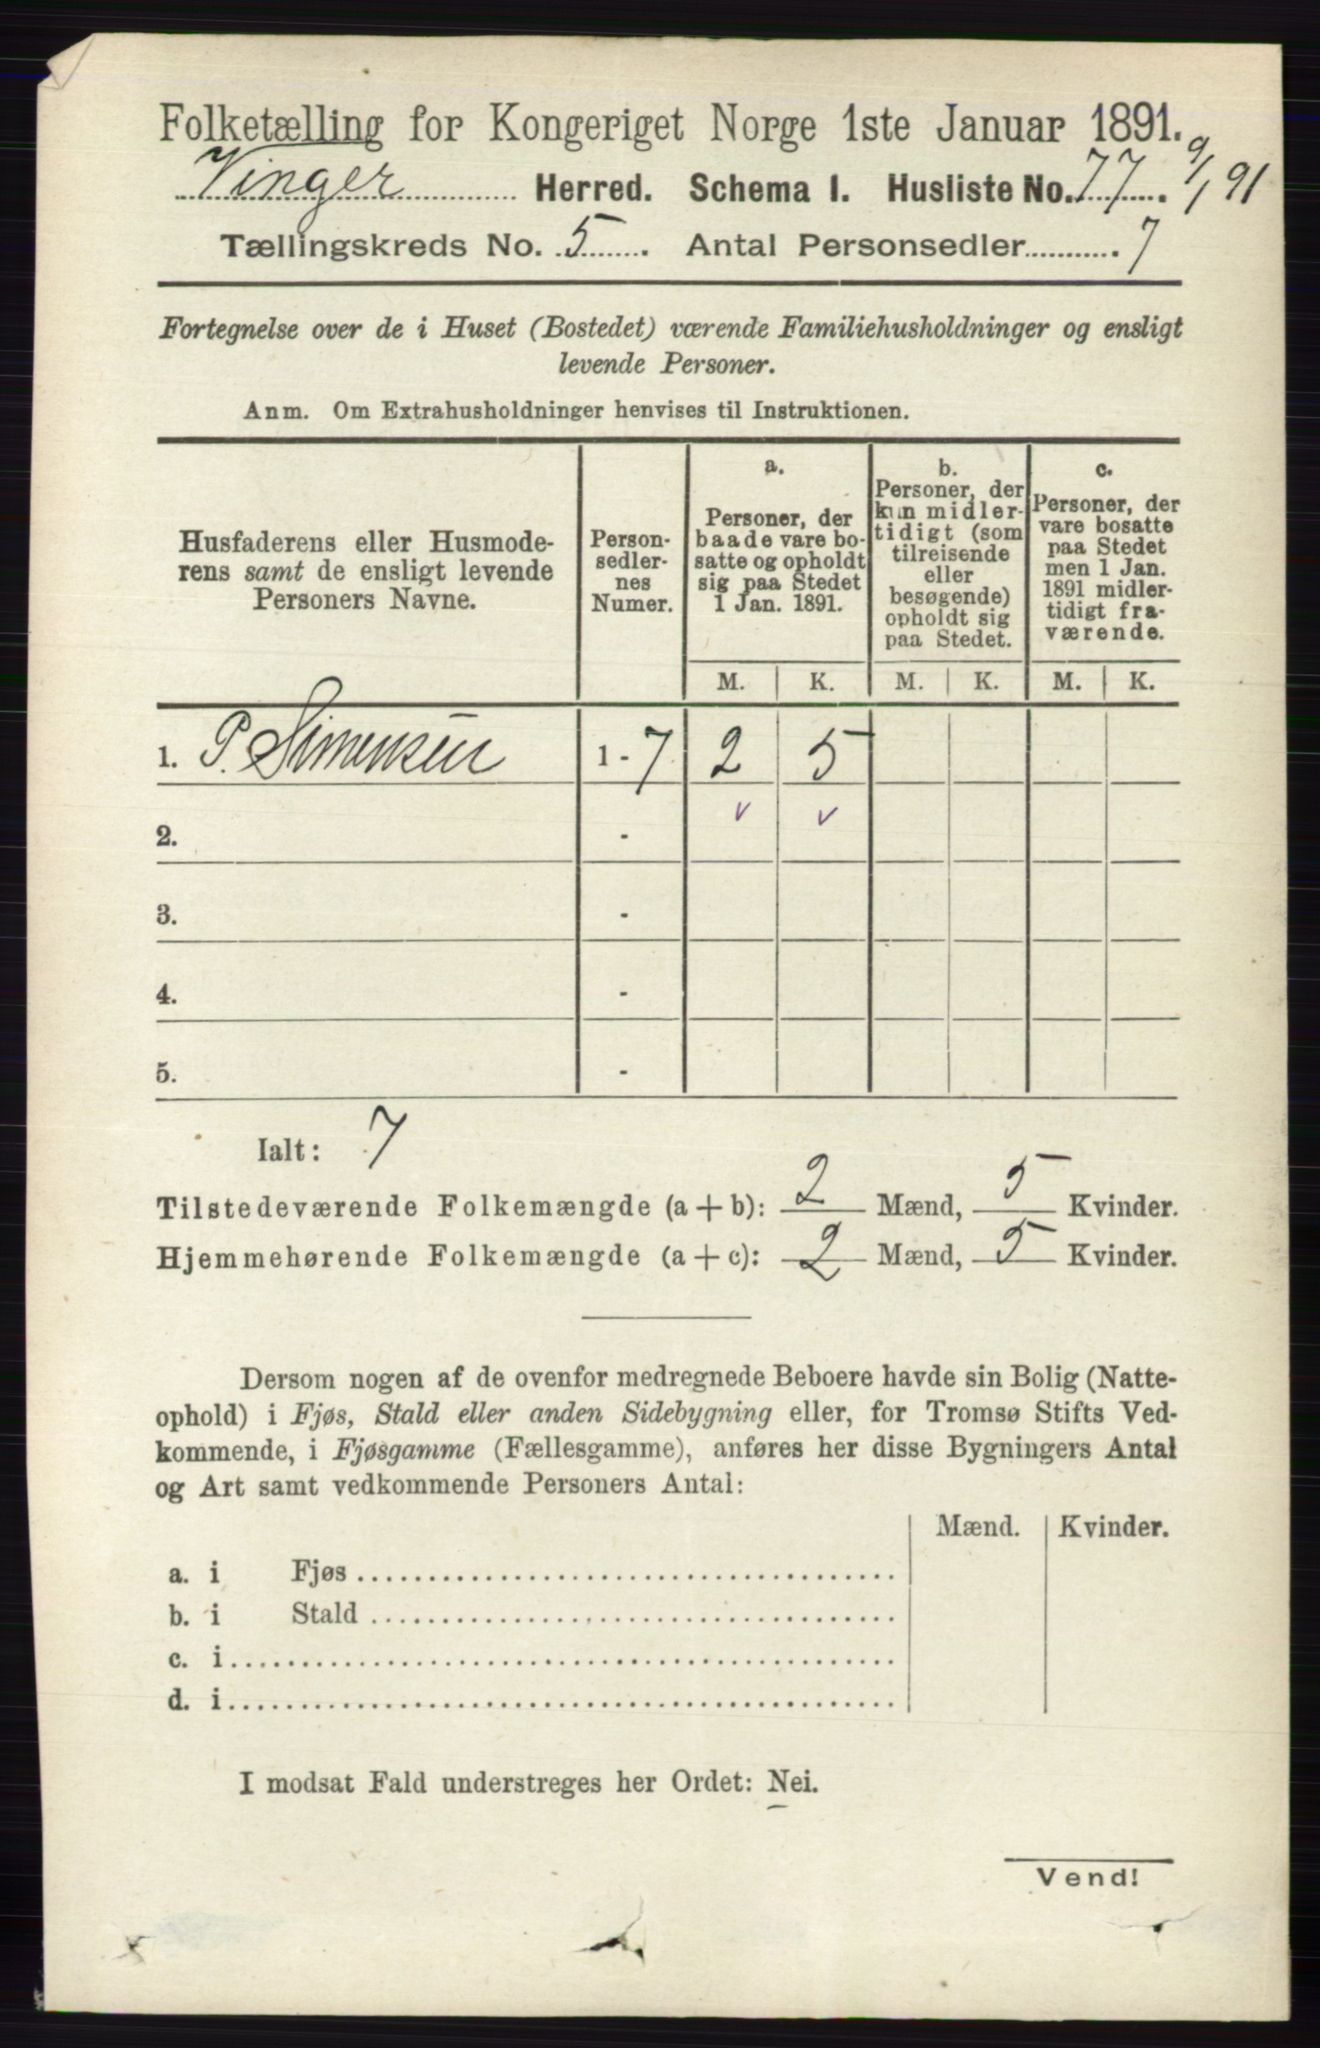 Folketælling for Kongeriget Norge 1ste Januar 1891.
Vinger Herred. Schema 1. Husliste No. 77. 9/1 91
Tællingskreds No. 5. Antal Personsedler 7
Fortegnelse over de i Huset (Bostedet) værende Familiehusholdninger og ensligt
levende Personer.
Anm. Om Extrahusholdninger henvises til Instruktionen.
Husfaderens eller Husmode-
rens samt de ensligt levende
Personers Navne.
Person-
sedler-
nes
Numer.
a.
Personer, der
baade vare bo-
satte og opholdt
sig paa Stedet
1 Jan. 1891.
b.
Personer, der
kun midler-
tidigt (som
tilreisende
eller
besøgende)
opholdt sig
paa Stedet.
c.
Personer, der
vare bosatte
paa Stedet
men 1 Jan.
1891 midler-
tidigt fra-
værende.
M. K. M. K. M. K.
1. P. Simensen 1 - 7 2 5
2. - v v
3. -
4. -
5. -
Ialt: 7
Tilstedeværende Folkemængde (a + b): 2 Mænd, 5 Kvinder.
Hjemmehørende Folkemængde (a + c): 2 Mænd, 5 Kvinder.
Dersom nogen af de ovenfor medregnede Beboere havde sin Bolig (Natte-
ophold) i Fjøs, Stald eller anden Sidebygning eller, for Tromsø Stifts Ved-
kommende, i Fjøsgamme (Fællesgamme), anføres her disse Bygningers Antal
og Art samt vedkommende Personers Antal:
Mænd. Kvinder.
a. i Fjøs
b. i Stald
c. i
d. i
I modsat Fald understreges her Ordet: Nei.
Vend!